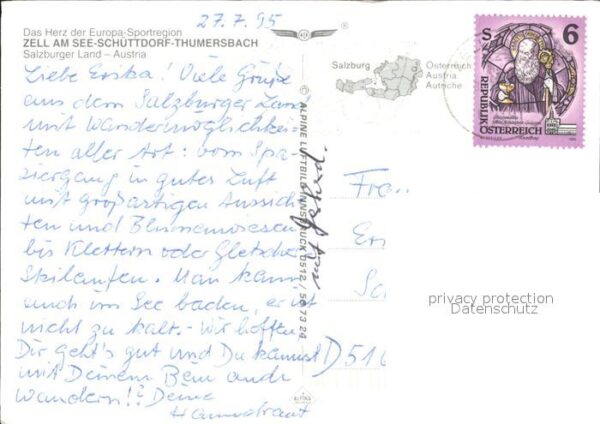 27.7.95
Das Herz der Europa-Sportregion
ZELL AM SEE-SCHÜTTDORF-THUMERSBACH
Salzburger Land – Austria
Liebe Erika! Viele Grüße
aus dem Salzburger Land
mit Wandermöglichkei-
ten aller Art: vom Spa-
ziergang in guter Luft
mit großartigen Aussich-
ten und Blumenwiesen
bis Klettern oder Gletscher
Skilaufen. Man kann
auch im See baden, er ist
nicht zu kalt. - Wir hoffen,
Dir geht's gut und Du kannst
mit Deinem Bein auch
wandern!? Deine
Hannetraut
mit
© ALPINE LUFTBILD INNSBRUCK 0512 /
73 24
Salzburg
Österreich
Austria
Autriche
S 6
REPUBLIK
ÖSTERREICH
Fra
Er
D 51
privacy protection
Datenschutz